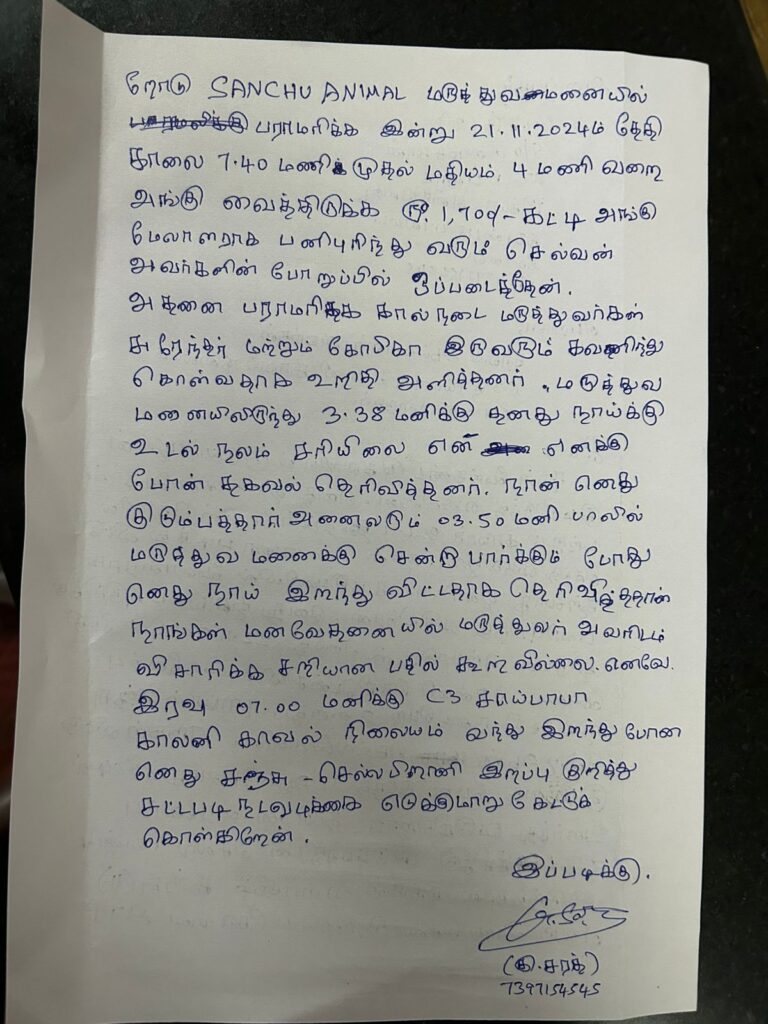 ரோடு SANCHU ANIMAL மருத்துவமனையில்
பராமரிக்க இன்று 21.11.2024ம் தேதி
காலை 7.40 மணி முதல் மதியம் 4 மணி வரை
அங்கு வைத்திருக்க ரூ. 1,700/- கட்டி அங்கு
மேலாளராக பனிபுரிந்து வரும் செல்வன்
அவர்களின் போறுப்பில் ஒப்படைத்தேன்.
அதனை பராமரிக்க கால்நடை மருத்துவர்கள்
சுரேந்தர் மற்றும் கோபிகா இருவரும் கவணிந்து
கொள்வதாக உறிதி அளித்தனர். மருத்துவ
மனையிலிருந்து 3.38 மனிக்கு தனது நாய்க்கு
உடல் நலம் சரியிலை என் எனக்கு
போன் தகவல் தெரிவித்தனர். நான் எனது
குடும்பத்தார் அனைவடும் 03.50 மனி பாலில்
மருத்துவ மனைக்கு சென்று பார்க்கும் போது
எனது நாய் இறந்து விட்டதாக தெரிவித்ததான்
நாங்கள் மனவேதனையில் மருத்துவர் அவரிடம்
விசாரிக்க சரியான பதில் கூறவில்லை. எனவே.
இரவு 07.00 மனிக்கு C3 சாய்பாபா
காலனி காவல் நிலையம் வந்து இறந்து போன
எனது சஞ்சு - செல்லபிராணி இறப்பு குறித்து
சட்டபடி நடவடிக்கை எடுக்குமாறு கேட்டுக்
கொள்கிறேன்.
இப்படிக்கு.
(கு.சரத்)
7397154545